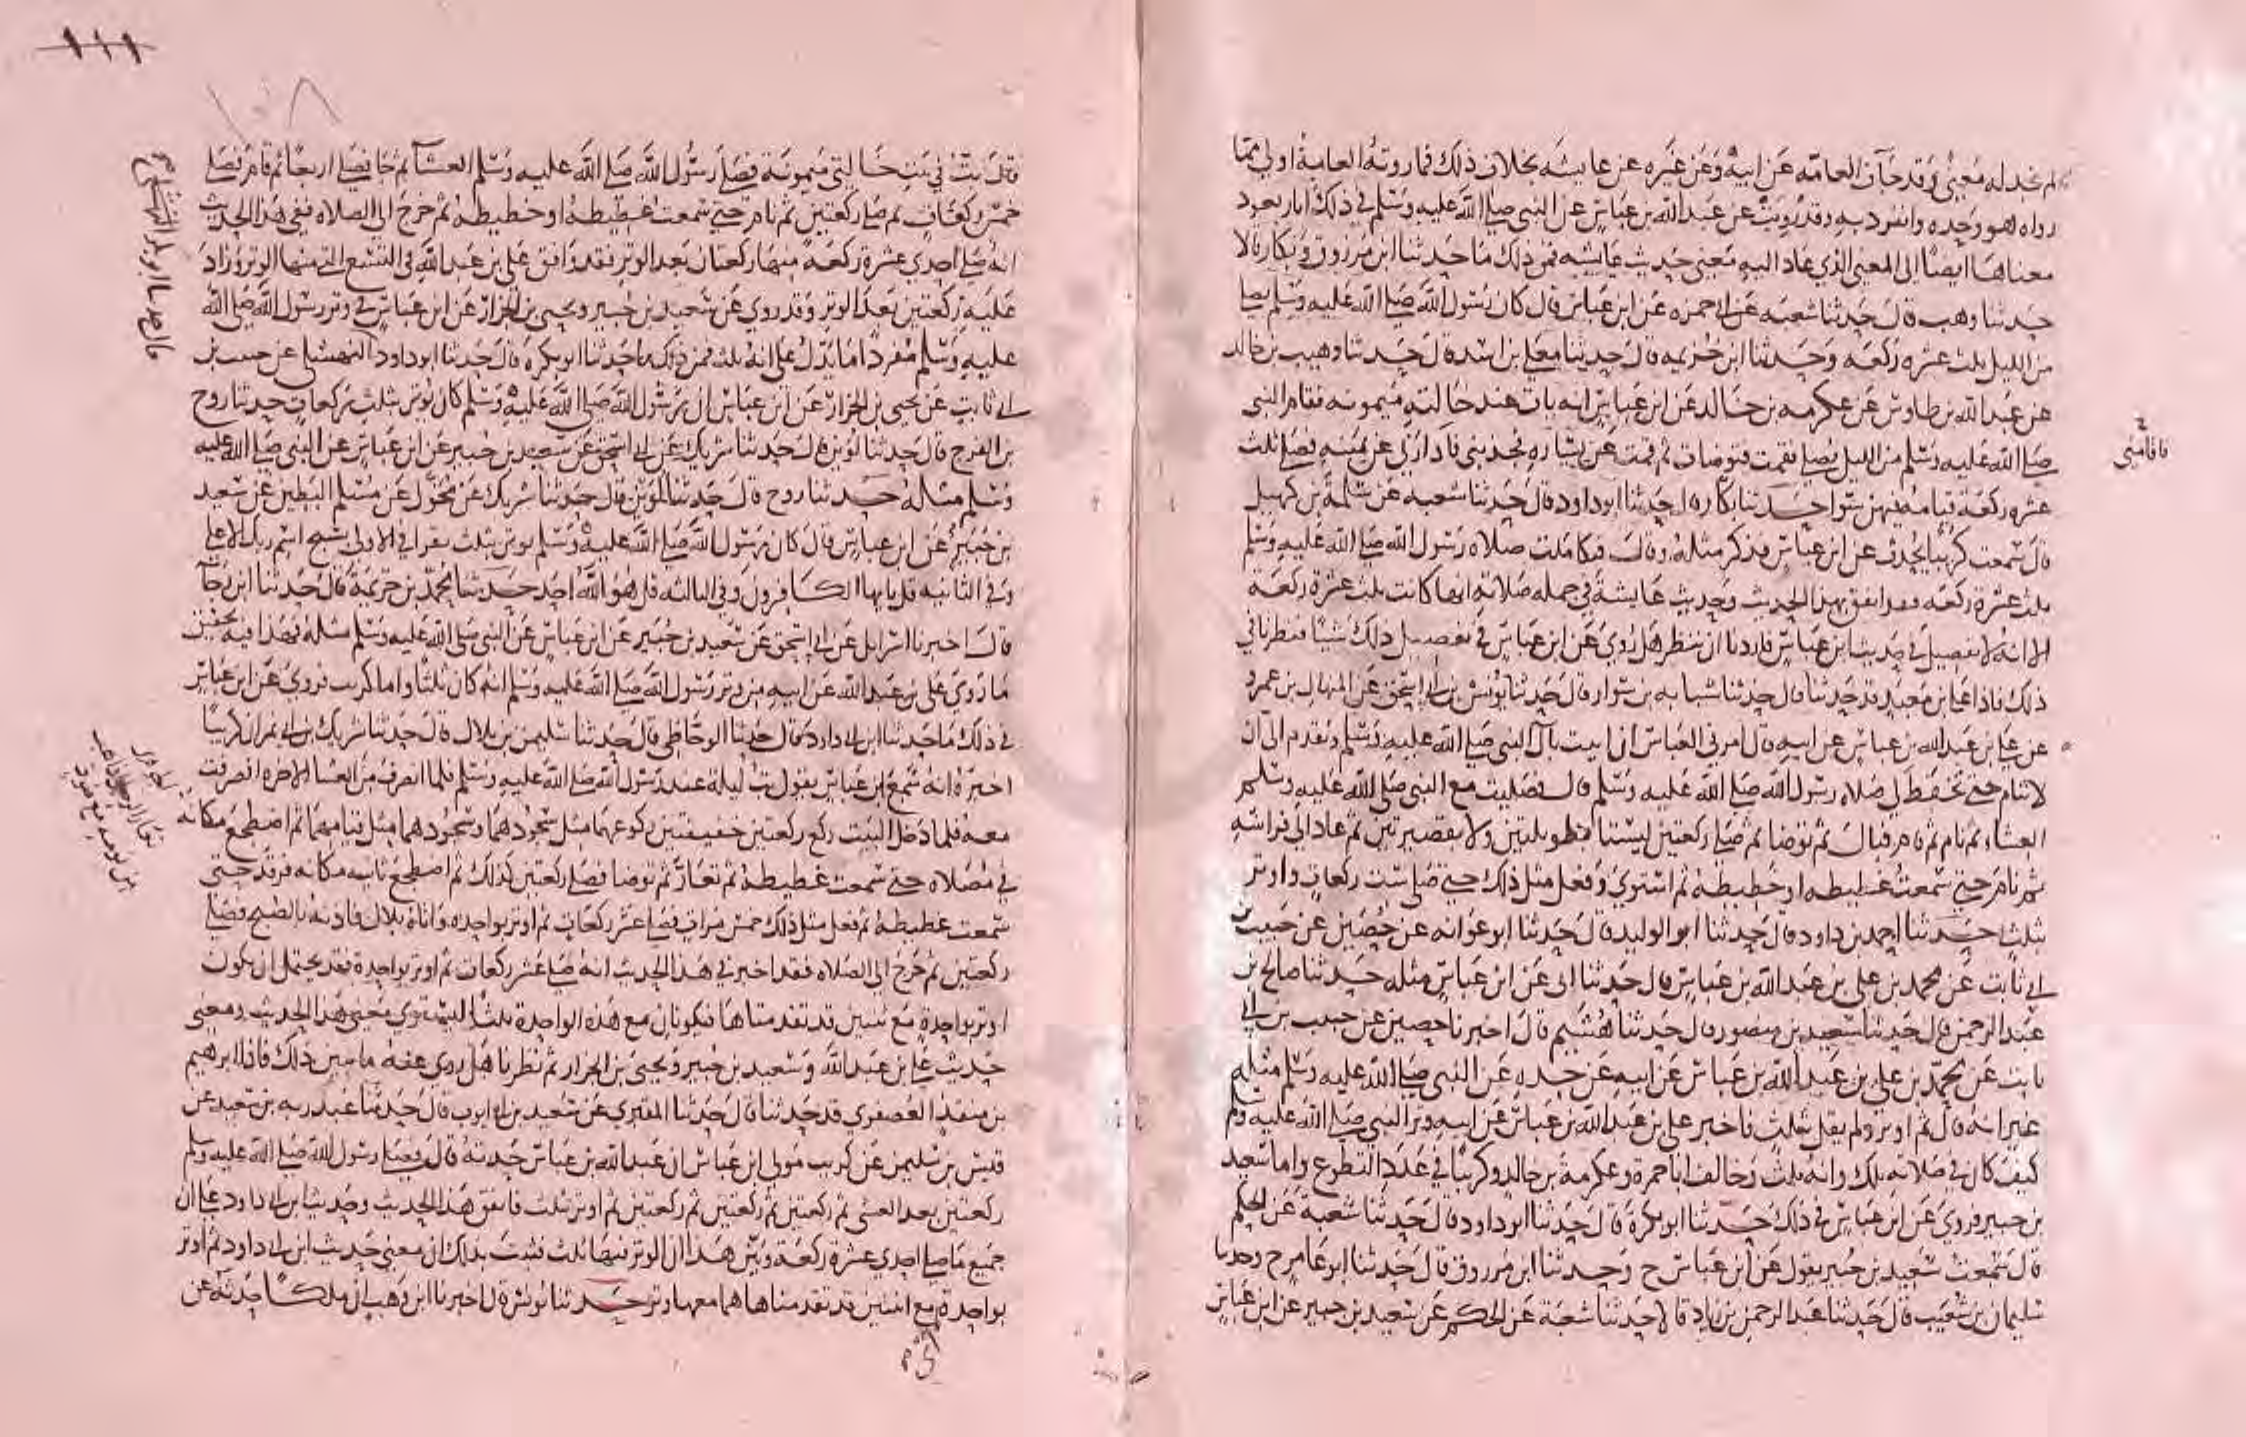 لم نجد له معنى وقد جآت العامه عن ابيه وعن غيره عن عايشه بخلاف ذلك فما روته العامة اولى مما
رواه هو وحده وانفرد به وقد رويت عن عبد الله بن عباس عن النبي صلى الله عليه وسلم في ذلك اثار يعود
معناها ايضا الى المعنى الذي عاد اليه معنى حديث عايشه فمن ذلك ما حدثنا ابن مرزوق وبكار قالا
حدثنا وهب قال حدثنا شعبه عن ابي حمزه عن ابن عباس قال كان رسول الله صلى الله عليه وسلم يصلي
من الليل ثلث عشره ركعه وحدثنا ابن خزيمه قال حدثنا معلى بن اسد قال حدثنا وهيب بن خالد
عن عبد الله بن طاوس عن عكرمه بن خالد عن ابن عباس انه بات عند خالته ميمونه فقام النبي
صلى الله عليه وسلم من الليل يصلي فقمت فتوضات ثم قمت عن يساره فجذبني فادارني عن يمينه فصلى ثلث
فاقامني
عشره ركعة قيامه فيهن سوا حدثنا بكار حدثنا ابو داود قال حدثنا شعبة عن سلمة بن كهيل
قال سمعت كريبا يحدث عن ابن عباس فذكر مثله وقال فتكاملت صلاه رسول الله صلى الله عليه وسلم
ثلث عشرة ركعه فقد اتفق هذا الحديث وحديث عايشة في جمله صلاته انها كانت ثلث عشرة ركعه
الا انه لا تفصيل في حديث ابن عباس فاردنا ان ننظر هل روي عن ابن عباس في تفصيل ذلك شيئا فنظرنا في
ذلك فاذا علي بن معبد قد حدثنا قال حدثنا شبابه بن سوار قال حدثنا يونس بن ابي اسحق عن المنهال بن عمرو
عن علي بن عبد الله بن عباس عن ابيه قال امرني العباس ان ابيت بآل النبي صلى الله عليه وسلم وتقدم الي ان
لا تنام حتى تحفظ لي صلاه رسول الله صلى الله عليه وسلم قال فصليت مع النبي صلى الله عليه وسلم
العشاء ثم نام ثم قام فبال ثم توضا ثم صلى ركعتين ليستا بطويلتين ولا بقصيرتين ثم عاد الى فراشه
ثم نام حتى سمعت غطيطه او خطيطه ثم استوى وفعل مثل ذلك حتى صلى ست ركعات واوتر
بثلث حدثنا احمد بن داود قال حدثنا ابو الوليد قال حدثنا ابو عوانه عن حصين عن حبيب بن
ابي ثابت عن محمد بن علي بن عبد الله بن عباس قال حدثنا ابي عن ابن عباس مثله حدثنا صالح بن
عبد الرحمن قال حدثنا سعيد بن منصور قال حدثنا هشيم قال اخبرنا حصين عن حبيب بن ابي
ثابت عن محمد بن علي بن عبد الله بن عباس عن ابيه عن جده عن النبي صلى الله عليه وسلم مثله
غير انه قال ثم اوتر ولم يقل بثلث فاخبر علي بن عبد الله بن عباس عن ابيه وتر النبي صلى الله عليه وسلم
كيف كان في صلاته تلك وانه ثلث وخالف ابا حمزة وعكرمة بن خالد وكريبا في عدد التطوع واما سعيد
بن جبير فروي عن ابن عباس في ذلك حدثنا ابو بكرة قال حدثنا ابو داود قال حدثنا شعبة عن الحكم
قال سمعت سعيد بن جبير يقول عن ابن عباس ح وحدثنا ابن مرزوق قال حدثنا ابو عامر ح وحدثنا
سليمان بن شعيب قال حدثنا عبد الرحمن بن زياد قالا حدثنا شعبة عن الحكم عن سعيد بن جبير عن ابن عباس
١١١
١٠٨
قال بت في بيت خالتي ميمونة فصلى رسول الله صلى الله عليه وسلم العشآ ثم جا فصلى اربعا ثم قام فصلى
خمس ركعات ثم صلى ركعتين ثم نام حتى سمعت غطيطه او خطيطه ثم خرج الى الصلاه ففي هذا الحديث
انه صلى احدى عشرة ركعة منها ركعتان بعد الوتر فقد وافق علي بن عبد الله في التسع التي منها الوتر وزاد
عليه ركعتين بعد الوتر وقد روي عن سعيد بن جبير ويحيى بن الجزار عن ابن عباس في وتر رسول الله صلى الله
عليه وسلم مفردا ما يدل على انه ثلث فمن ذلك ما حدثنا ابو بكرة قال حدثنا ابو داود النهشلي عن حبيب بن
ابي ثابت عن يحيى بن الجزار عن ابن عباس ان رسول الله صلى الله عليه وسلم كان يوتر بثلث ركعات حدثنا روح
بن الفرج قال حدثنا لوين قال حدثنا شريك عن ابي اسحق عن سعيد بن جبير عن ابن عباس عن النبي صلى الله عليه
وسلم مثله حدثنا روح قال حدثنا لوين قال حدثنا شريك عن مخول عن مسلم البطين عن سعيد
بن جبير عن ابن عباس قال كان رسول الله صلى الله عليه وسلم يوتر بثلث يقرا في الاولى سبح اسم ربك الاعلى
وفي الثانيه قل يايها الكافرون وفي الثالثه قل هو الله احد حدثنا محمد بن خزيمة قال حدثنا ابن رجآ
قال اخبرنا اسرايل عن ابي اسحق عن سعيد بن جبير عن ابن عباس عن النبي صلى الله عليه وسلم مثله فهذا فيه تحقيق
ما روى علي بن عبد الله عن ابيه من وتر رسول الله صلى الله عليه وسلم انه كان ثلثا واما كريب فروي عن ابن عباس
في ذلك ما حدثنا ابن ابي داود قال حدثنا الوحاظي قال حدثنا سليمن بن بلال قال حدثنا شريك بن ابي نمر ان كريبا
اخبره انه سمع ابن عباس يقول بت ليلة عند رسول الله صلى الله عليه وسلم فلما انصرف من العشا الاخره انصرفت
معه فلما دخل البيت ركع ركعتين خفيفتين ركوعهما مثل سجودهما وسجودهما مثل قيامهما ثم اضطجع مكانه
في مصلاه حتى سمعت غطيطه ثم تعار ثم توضا فصلى ركعتين كذلك ثم اضطجع ثانيه مكانه فرقد حتى
سمعت غطيطه ثم فعل مثل ذلك خمس مرات فصلى عشر ركعات ثم اوتر بواحده واتاه بلال فاذنه بالصبح فصلى
ركعتين ثم خرج الى الصلاه فقد اخبر في هذا الحديث انه صلى عشر ركعات ثم اوتر بواحدة فقد يحتمل ان يكون
اوتر بواحدة مع ثنتين قد تقدمتاها فتكونان مع هذه الواحدة ثلثا ليستوي معنى هذا الحديث ومعنى
حديث علي بن عبد الله وسعيد بن جبير ويحيى بن الجزار ثم نظرنا هل روي عنه ما يبين ذلك فاذا ابرهيم
بن منقذ العصفري قد حدثنا قال حدثنا المقري عن سعيد بن ابي ايوب قال حدثنا عبد ربه بن سعيد عن
قيس بن سليمن عن كريب مولى ابن عباس ان عبد الله بن عباس حدثه قال فصلى رسول الله صلى الله عليه وسلم
ركعتين بعد العشى ثم ركعتين ثم ركعتين ثم ركعتين ثم اوتر بثلث فاتفق هذا الحديث وحديث ابن ابي داود على ان
جميع ما صلى احدى عشرة ركعة وبين هذا ان الوتر منها ثلث فثبت بذلك ان معنى حديث ابن ابي داود ثم اوتر
بواحدة مع اثنتين قد تقدمتاها هما معها وتر حدثنا يونس قال اخبرنا ابن وهب ان ملكا حدثه عن